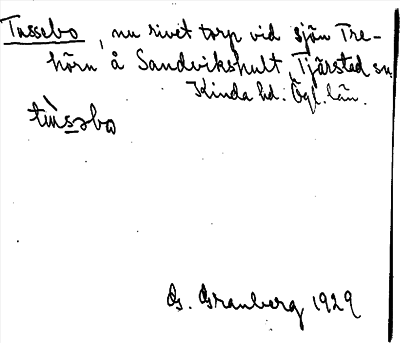 Tussebo, nu rivet torp vid sjön Tre-
hörn å Sandvikshult, Tjärsted sn
Kinda hd. Ögl. län.
G. Granberg 1929